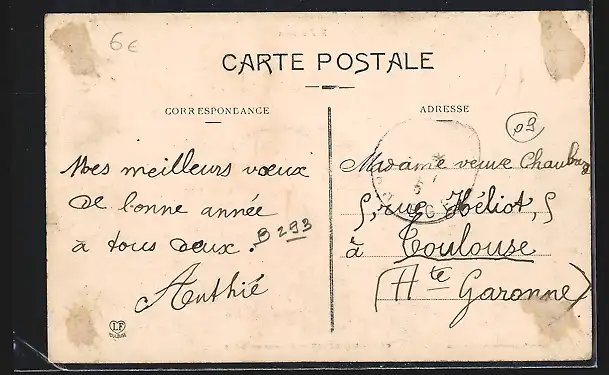 6€
CARTE POSTALE
CORRESPONDANCE
ADRESSE
09
Mes meilleurs vœux
de bonne année
à tous deux.
B 293
Authié
Madame veuve
5, rue Héliot, 5
à Toulouse
(Hte Garonne)
LF